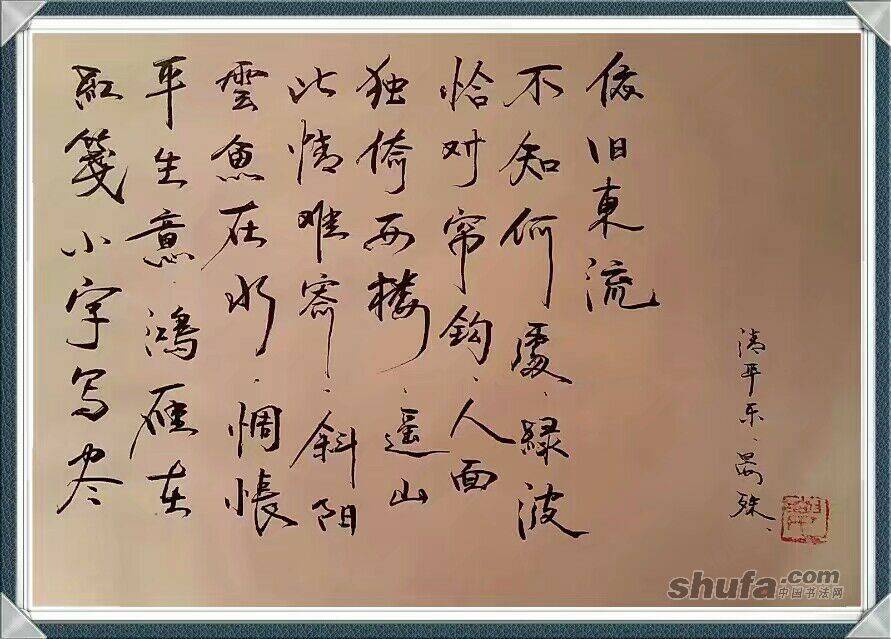 红笺小字写尽
平生意·鸿雁在
雲鱼在水·惆怅
此情难寄·斜阳
独倚西楼·遥山
恰对帘钩·人面
不知何處·緑波
依旧東流
清平乐·晏殊
shufa.com
中国书法网